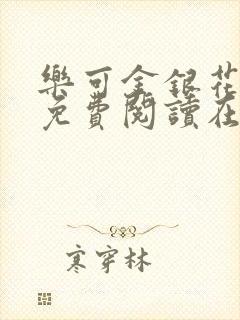 樂可金銀花
免費閱讀在
寒穿林